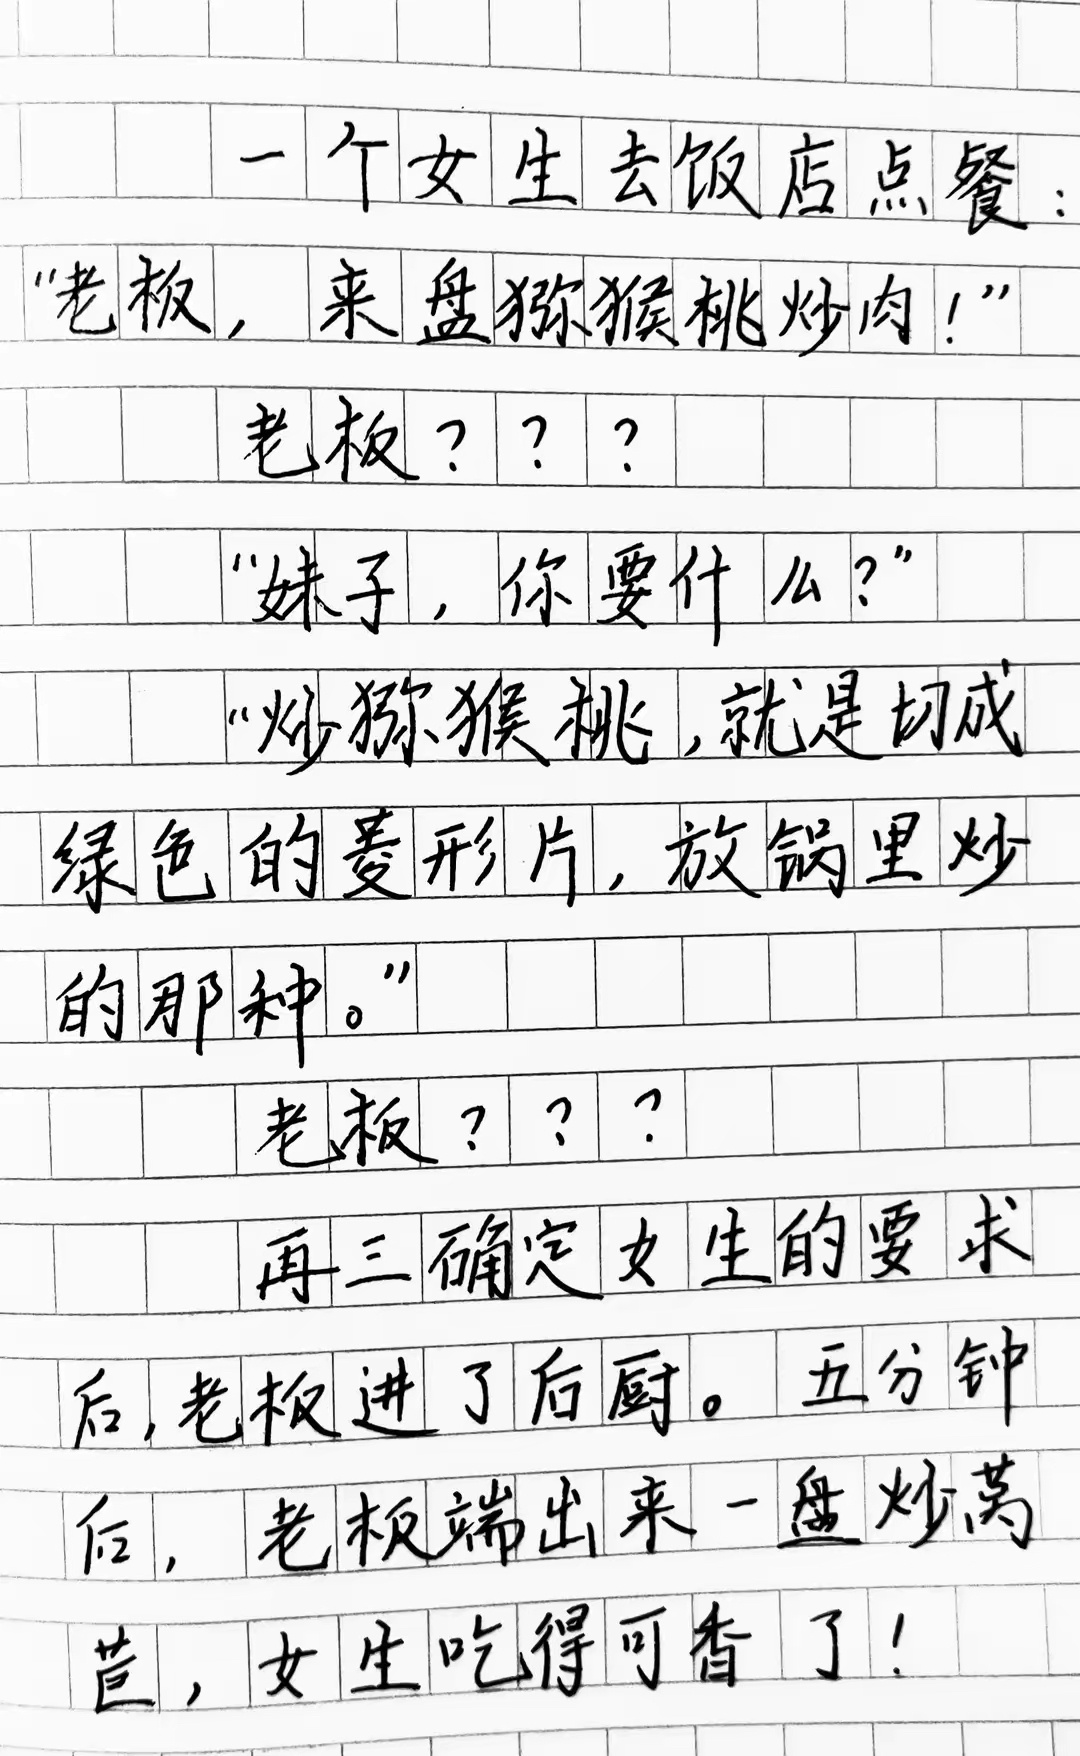 一个女生去饭店点餐：
“老板，来盘猕猴桃炒肉！”
老板？？？
“妹子，你要什么？”
“炒猕猴桃，就是切成
绿色的菱形片，放锅里炒
的那种。”
老板？？？
再三确定女生的要求
后，老板进了后厨。五分钟
后，老板端出来一盘炒莴
苣，女生吃得可香了！